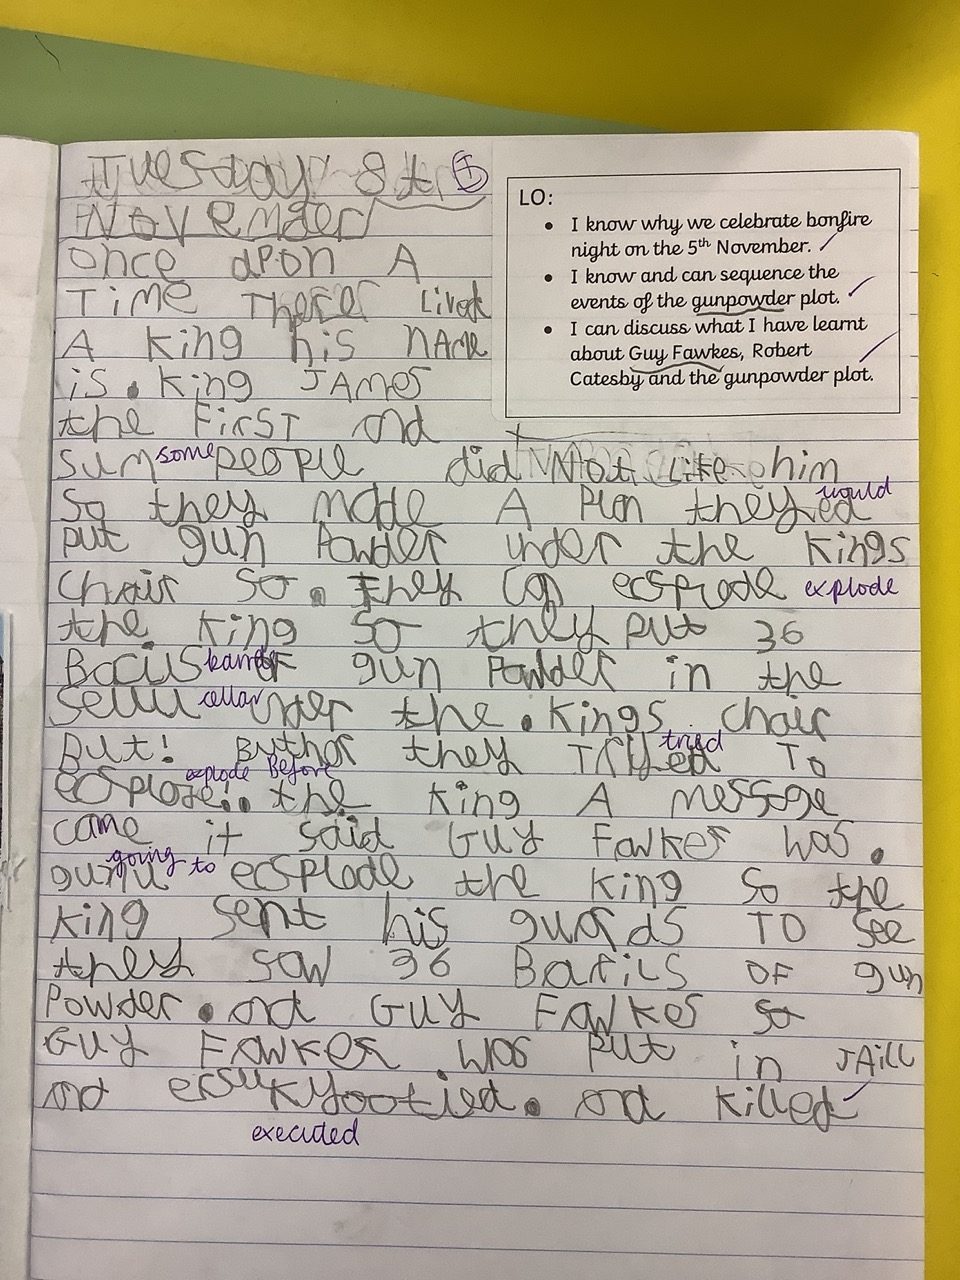 Tuesday 8th I
November
LO:
• I know why we celebrate bonfire
night on the 5th November.
• I know and can sequence the
events of the gunpowder plot.
• I can discuss what I have learnt
about Guy Fawkes, Robert
Catesby and the gunpowder plot.
once apon A
Time There Lived
A king his nAme
is. king JAmes
the First and
sum some people did Not Like him
So they made A Plan they ed would
put gun Powder under the kings
Chair so. they ecsplode explode
the king so they put 36
barrels OF gun Powder in the
cellar under the. kings chair
But! they Tryed tried To
explode Before the king A message
came it said Guy Fawkes was.
going to ecsplode the king so the
king sent his guards To see
they saw 36 Barils OF gun
Powder. and Guy Fawkes so
Guy Fawkes was put in JAill
and and killed
executed